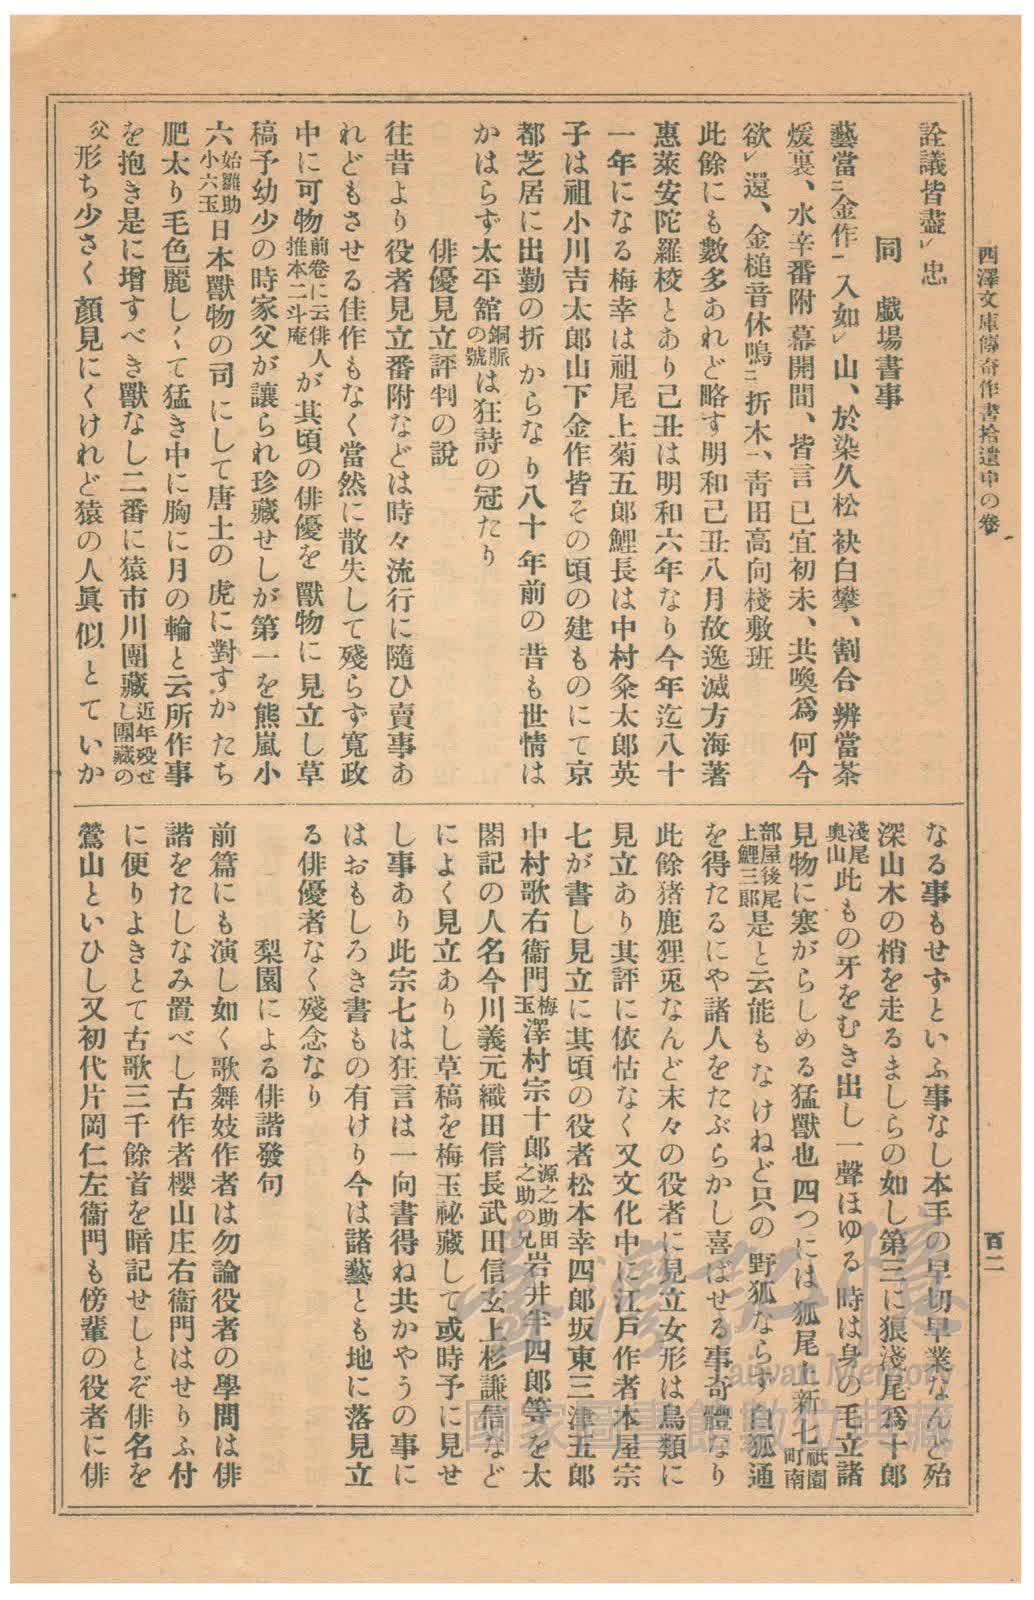 西澤文庫傳奇作書拾遺中の卷
百二
詮議皆盡ㇾ忠
同　戯場書事
藝當ニ金作一入如ㇾ山、於染久松袂白攀、割合辨當茶
煖裏、水辛番附幕開間、皆言已宜初未、共喚爲何今
欲ㇾ還、金槌音休鳴ニ折木一、靑田高向棧敷班
此餘にも數多あれど略す明和己丑八月故逸滅方海著
惠萊安陀羅校とあり己丑は明和六年なり今年迄八十
一年になる梅幸は祖尾上菊五郎鯉長は中村粂太郎英
子は祖小川吉太郎山下金作皆その頃の建ものにて京
都芝居に出勤の折からなり八十年前の昔も世情は
かはらず太平舘銅脈の號は狂詩の冠たり
俳優見立評判の說
往昔より役者見立番附などは時々流行に隨ひ賣事あ
れどもさせる佳作もなく當然に散失して殘らず寬政
中に可物前卷に云俳人推本二斗庵が其頃の俳優を獸物に見立し草
稿予幼少の時家父が讓られ珍藏せしが第一を熊嵐小
六始雛助小六玉日本獸物の司にして唐土の虎に對すかたち
肥太り毛色麗しくて猛き中に胸に月の輪と云所作事
を抱き是に增すべき獸なし二番に猿市川團藏近年歿せし團藏の
父形ち少さく顏見にくけれど猿の人眞似とていか
なる事もせずといふ事なし本手の早切早業なんど殆
深山木の梢を走るましらの如し第三に狼淺尾爲十郎
淺尾奥山此もの牙をむき出し一聲ほゆる時は身の毛立諸
見物に寒がらしめる猛獸也四つには狐尾上新七祇園町南
部屋後尾上鯉三郎是と云能もなけねど只の野狐ならず白狐通
を得たるにや諸人をたぶらかし喜ばせる事奇體なり
此餘猪鹿狸兎なんど末々の役者に見立女形は鳥類に
見立あり其評に依怙なく又文化中に江戸作者本屋宗
七が書し見立に其頃の役者松本幸四郎坂東三津五郎
中村歌右衞門梅玉澤村宗十郎源之助田之助の兄岩井半四郎等を太
閤記の人名今川義元織田信長武田信玄上杉謙信など
によく見立ありし草稿を梅玉祕藏して或時予に見せ
し事あり此宗七は狂言は一向書得ね共かやうの事に
はおもしろき書もの有けり今は諸藝とも地に落見立
る俳優者なく殘念なり
梨園による俳諧發句
前篇にも演し如く歌舞妓作者は勿論役者の學問は俳
諧をたしなみ置べし古作者櫻山庄右衞門はせりふ付
に便りよきとて古歌三千餘首を暗記せしとぞ俳名を
鶯山といひし又初代片岡仁左衞門も傍輩の役者に俳
臺灣記憶
Taiwan Memory
國家圖書館數位典藏